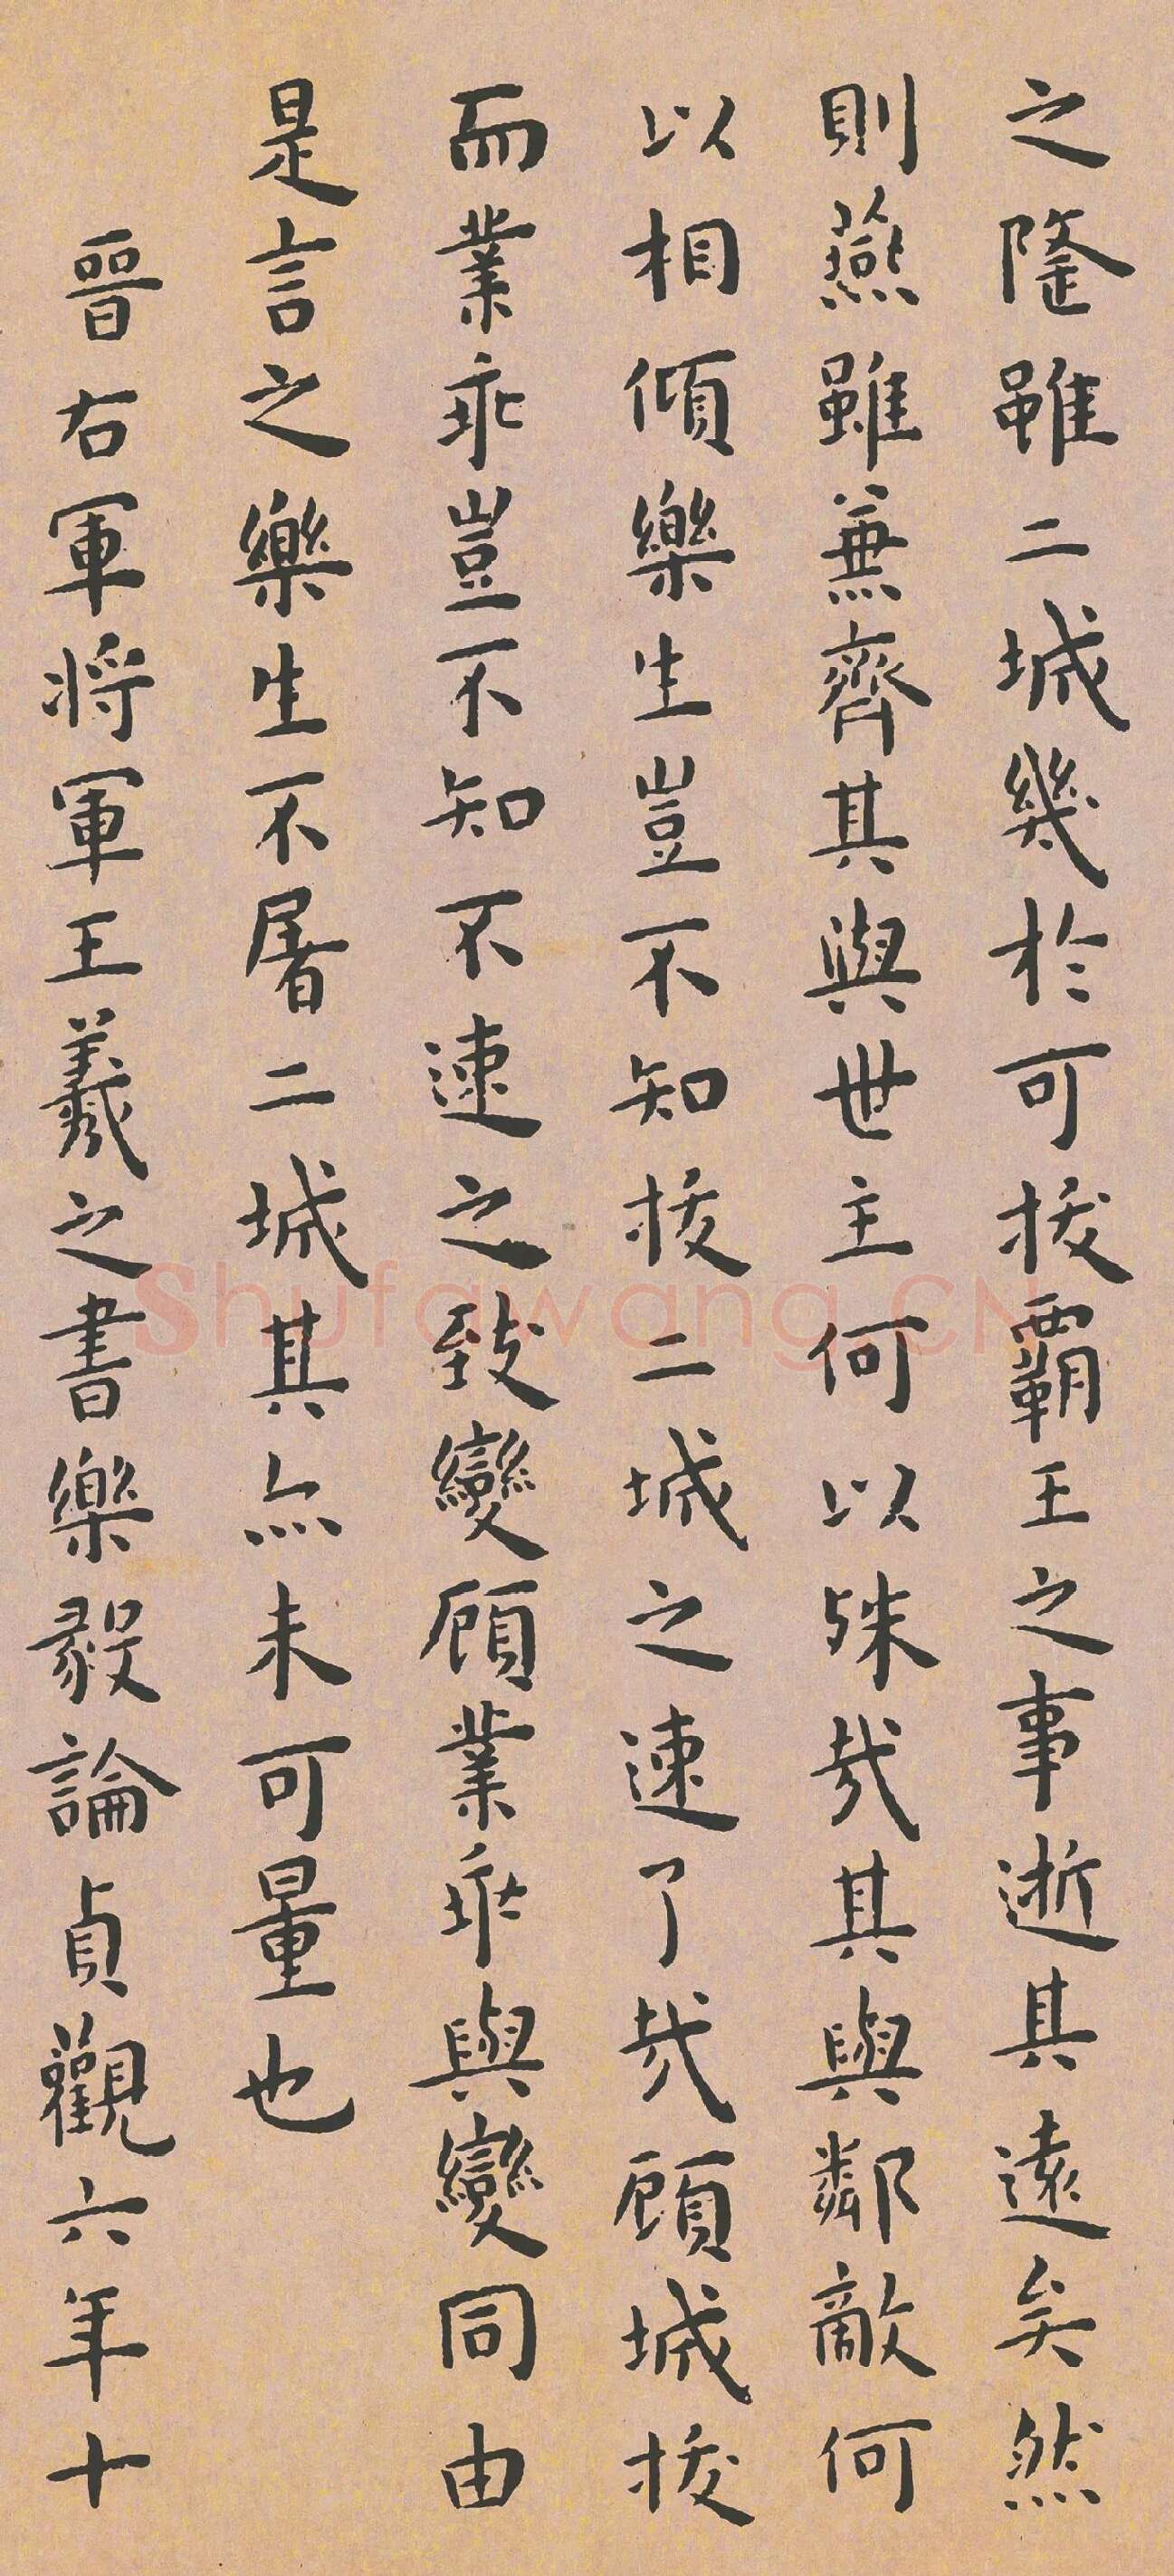 之隆雖二城幾於可拔霸王之事逝其遠矣然
則燕雖兼齊其與世主何以殊哉其與鄰敵何
以相傾樂生豈不知拔二城之速了哉顧城拔
而業乖豈不知不速之致變顧業乖與變同由
是言之樂生不屠二城其亦未可量也
晉右軍將軍王羲之書樂毅論貞觀六年十
Shufawang.CN